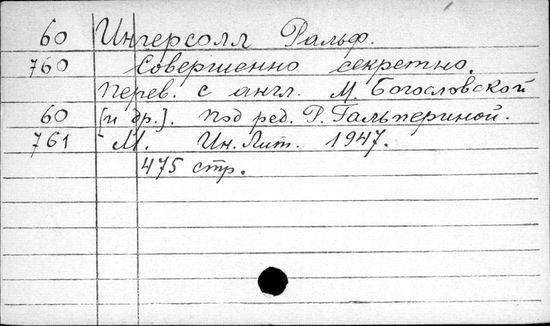 60 Ингерсолл Ральф.
760 Совершенно секретно.
Перев. с англ. М. Богословской
60 [и др.]. Под ред. Р. Гальпериной.
761 М. Ин. Лит. 1947.
475 стр.